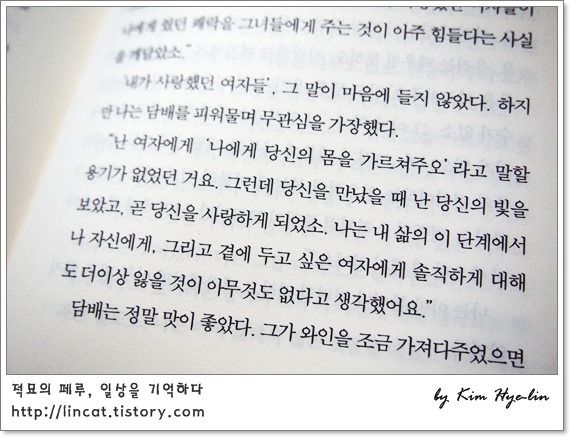 나에게 줬던 쾌락을 그녀들에게 주는 것이 아주 힘들다는 사실
을 깨달았소."
'내가 사랑했던 여자들', 그 말이 마음에 들지 않았다. 하지
만 나는 담배를 피워물며 무관심을 가장했다.
"난 여자에게 '나에게 당신의 몸을 가르쳐주오' 라고 말할
용기가 없었던 거요. 그런데 당신을 만났을 때 난 당신의 빛을
보았고, 곧 당신을 사랑하게 되었소. 나는 내 삶의 이 단계에서
나 자신에게, 그리고 곁에 두고 싶은 여자에게 솔직하게 대해
도 더이상 잃을 것이 아무것도 없다고 생각했어요."
담배는 정말 맛이 좋았다. 그가 와인을 조금 가져다주었으면
적묘의 페루, 일상을 기억하다
http://lincat.tistory.com
by Kim Hye-lin